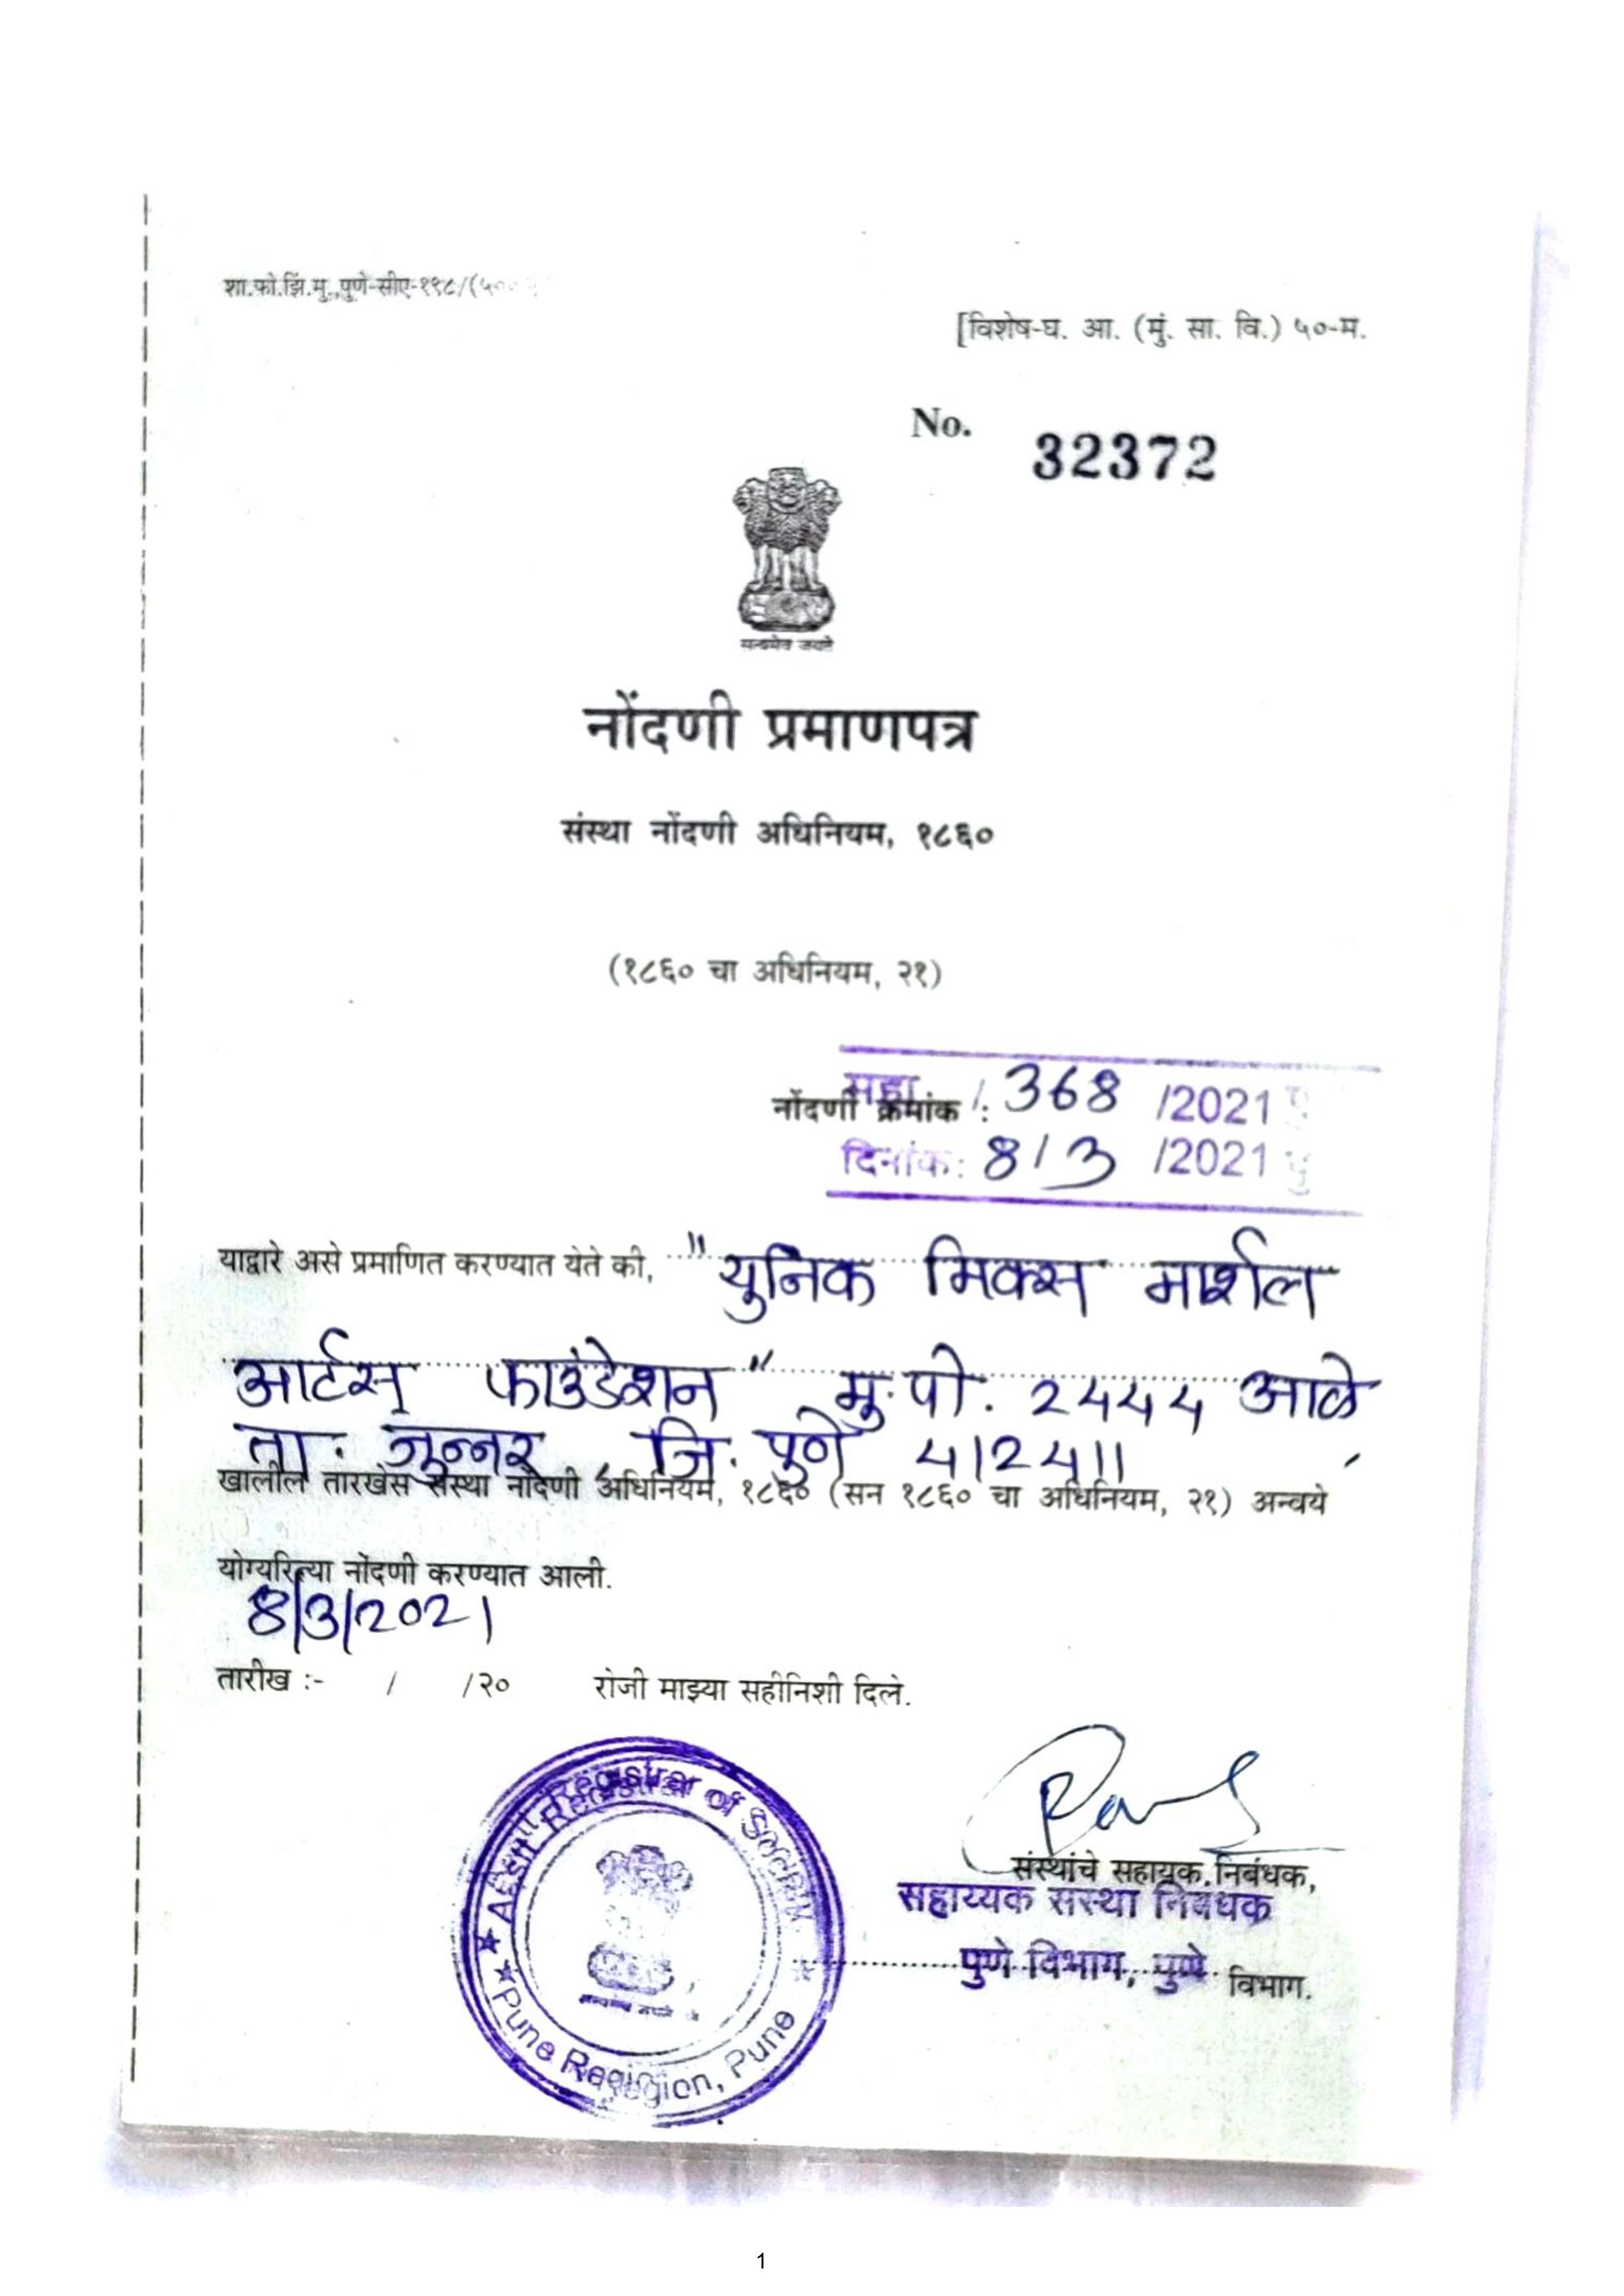 शा.फो.झिं.मु.,पुणे-सीए-१९८/(५००
[विशेष-घ. आ. (मुं. सा. वि.) ५०-म.
No. 32372
सत्यमेव जयते
नोंदणी प्रमाणपत्र
संस्था नोंदणी अधिनियम, १८६०
(१८६० चा अधिनियम, २१)
नोंदणी क्रमांक : महा / 368 /2021 पु
दिनांक: 8/3 /2021 पु
याद्वारे असे प्रमाणित करण्यात येते की, "युनिक मिक्स मार्शल
आर्टस् फाउंडेशन" मु.पो. 2444 आळे
ता. जुन्नर, जि. पुणे 412411
खालील तारखेस संस्था नोंदणी अधिनियम, १८६० (सन १८६० चा अधिनियम, २१) अन्वये
योग्यरित्या नोंदणी करण्यात आली.
8/3/2021
तारीख :- / /२० रोजी माझ्या सहीनिशी दिले.
Registrar of
Pune Region, Pune
संस्थांचे सहायक निबंधक,
सहाय्यक संस्था निबंधक
पुणे विभाग, पुणे विभाग.
1